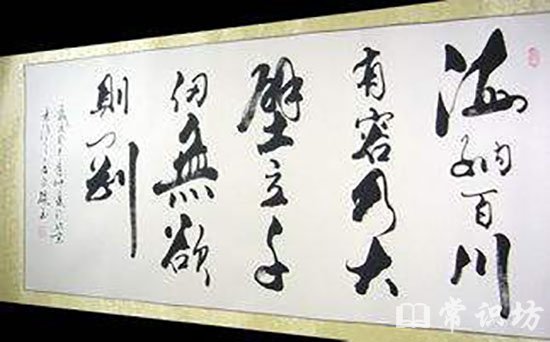 海纳百川
有容乃大
壁立千
仞無欲
則剛
常识坊